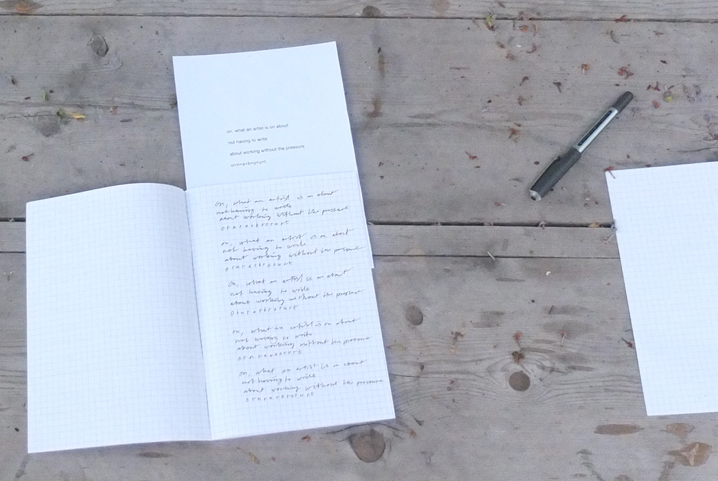 on, what an artist is on about
not having to write
about working without the pressure
on, what an artist is on about
not having to write
about working without the pressure
on, what an artist is on about
not having to write
about working without the pressure
on, what an artist is on about
not having to write
about working without the pressure
on, what an artist is on about
not having to write
about working without the pressure
on, what an artist is on about
not having to write
about working without the pressure